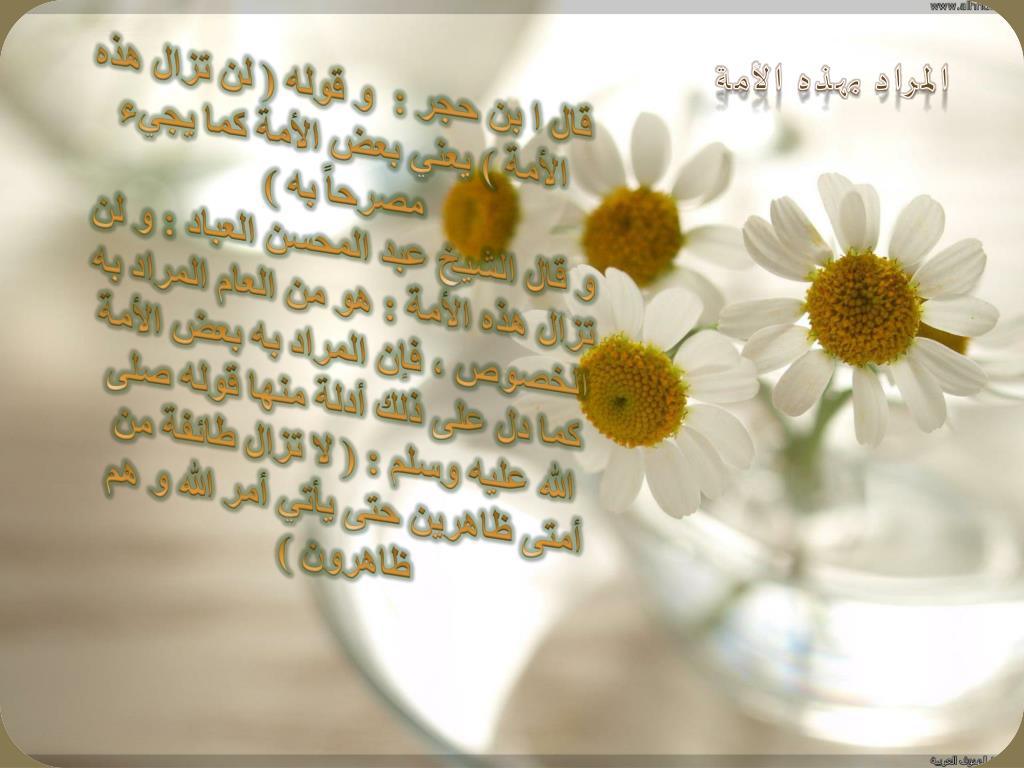 المراد بهذه الأمة
قال ا بن حجر : و قوله ( لن تزال هذه
الأمة ) يعني بعض الأمة كما يجيء
مصرحاً به )
و قال الشيخ عبد المحسن العباد : و لن
تزال هذه الأمة : هو من العام المراد به
الخصوص ، فإن المراد به بعض الأمة
كما دل على ذلك أدلة منها قوله صلى
الله عليه وسلم : ( لا تزال طائفة من
أمتى ظاهرين حتى يأتي أمر الله و هم
ظاهرون )